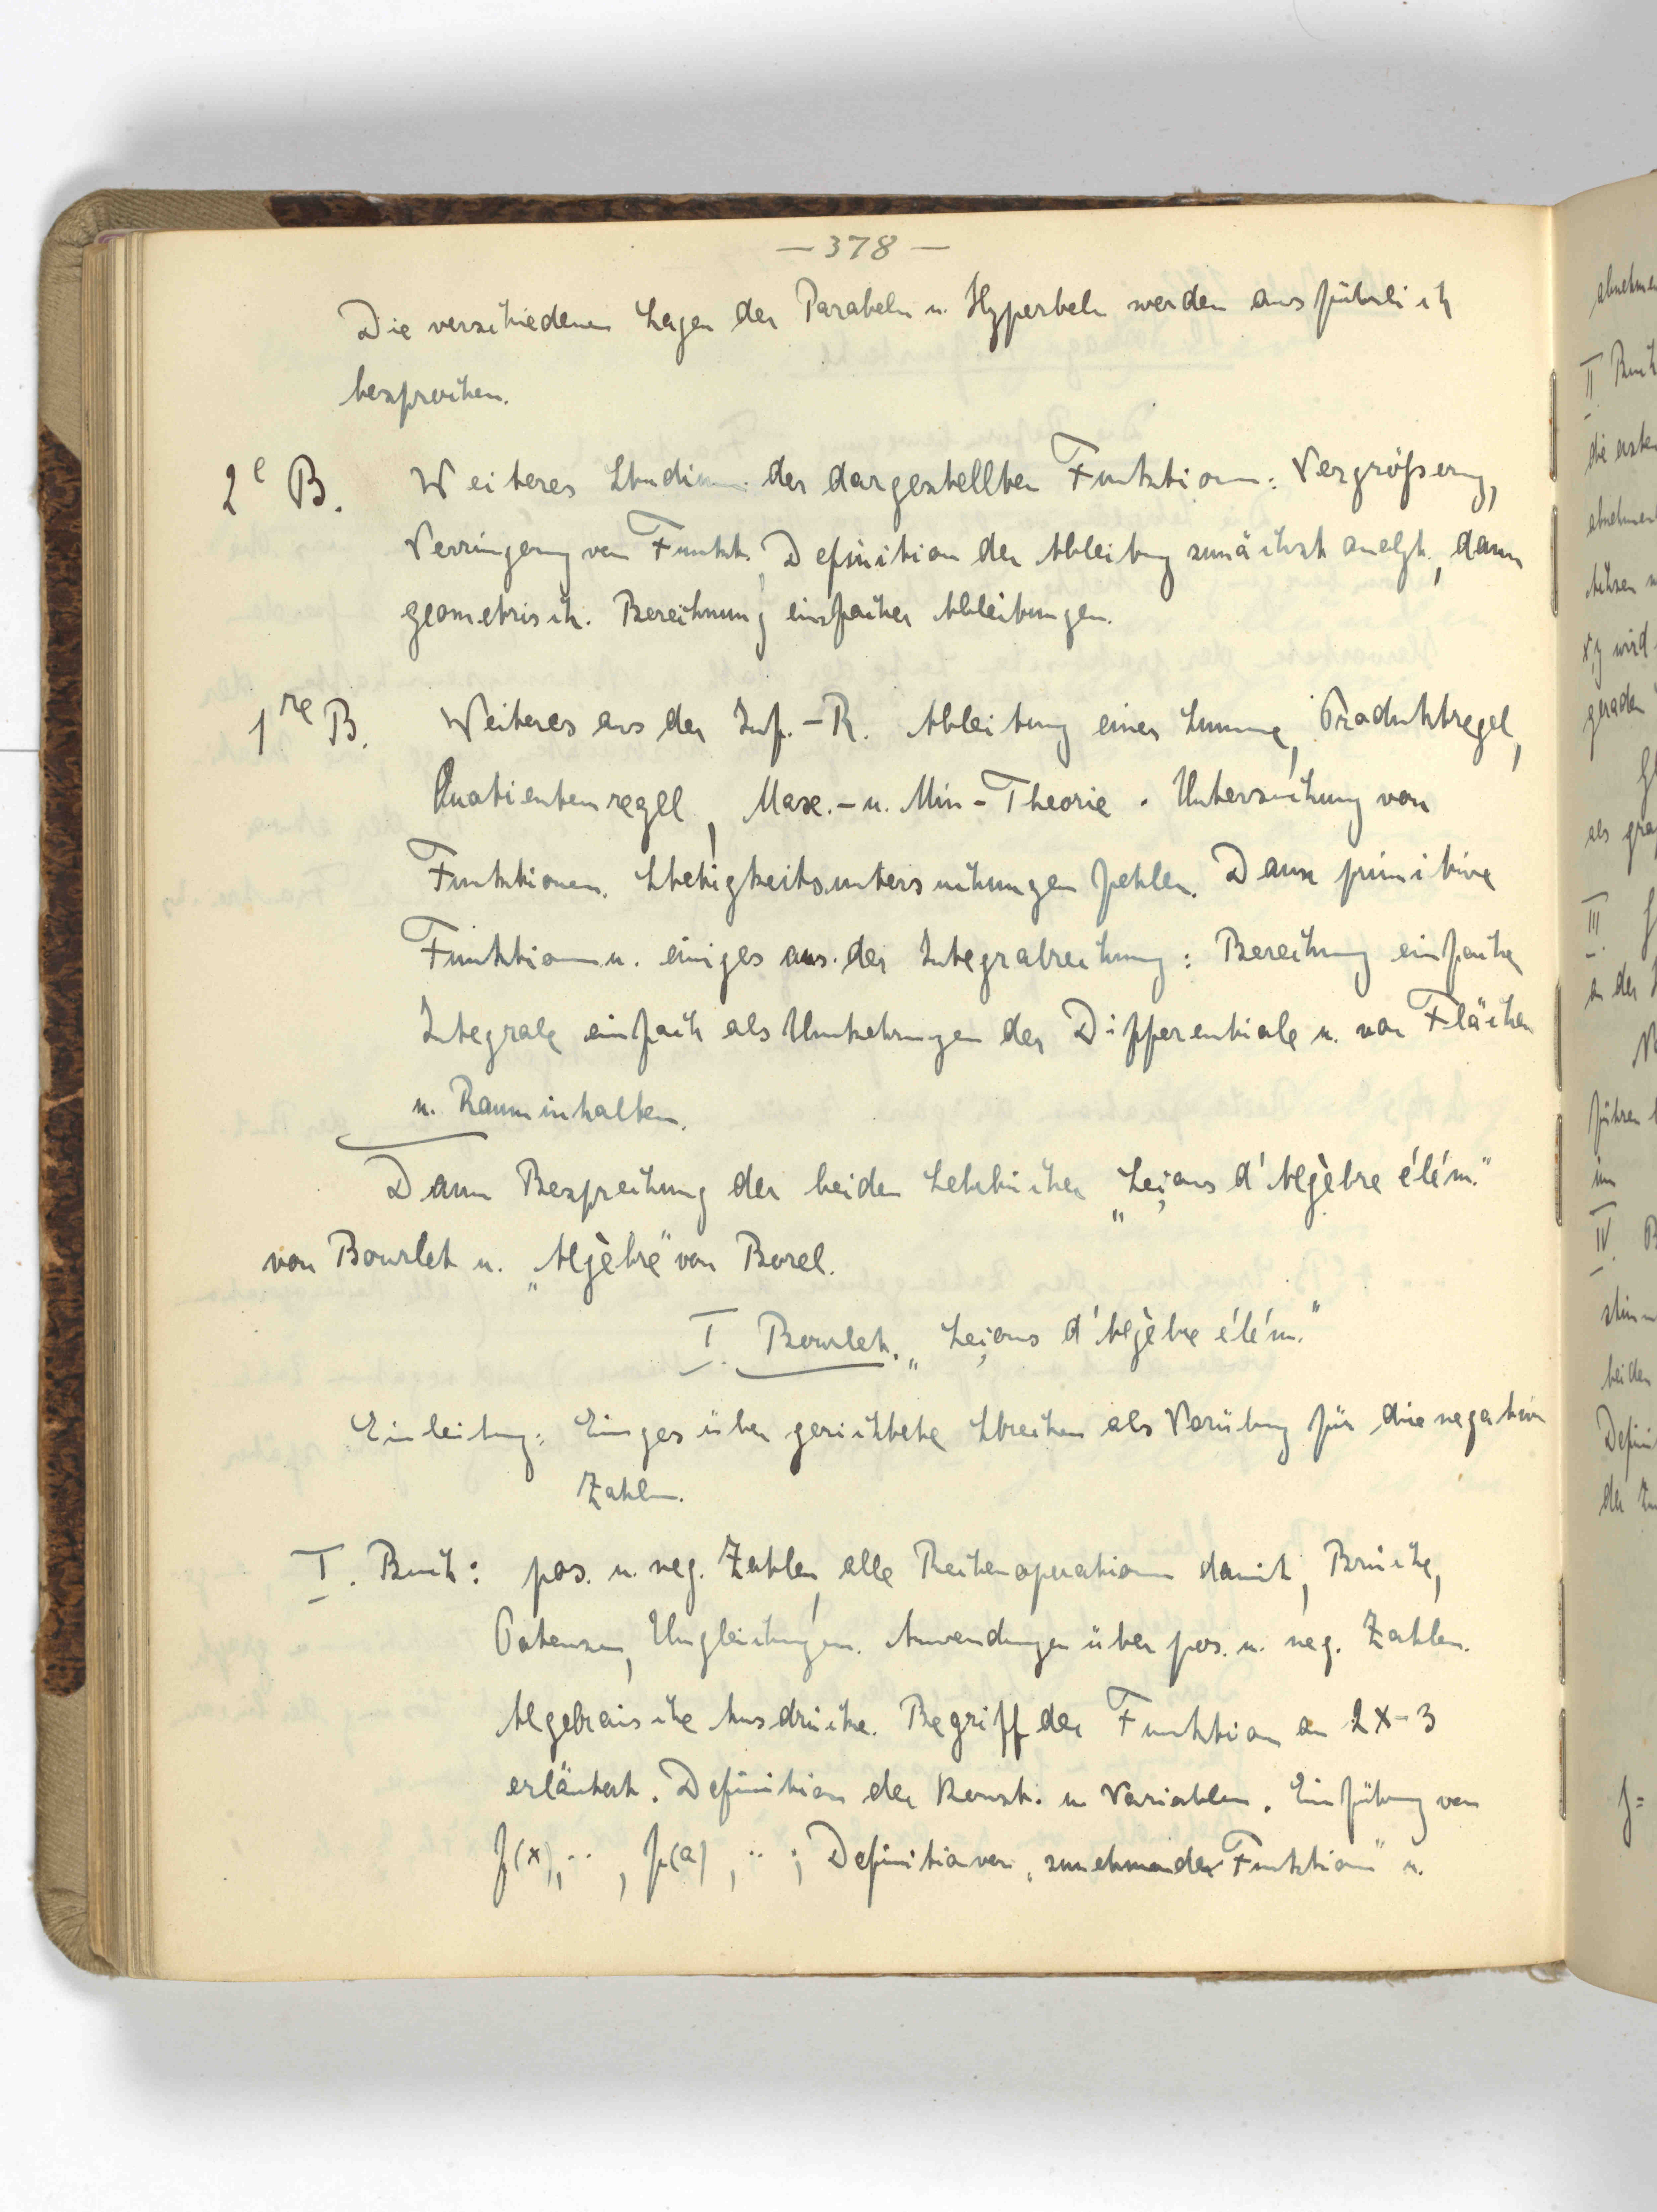 — 378 —
Die verschiedenen Lagen der Parabeln u. Hyperbeln werden ausführlich
besprochen.
2e B. Weiteres Studium der dargestellten Funktionen: Vergrößerung,
Verringerung von Funkt. Definition der Ableitung zunächst analyt., dann
geometrisch. Berechnung einfacher Ableitungen.
1re B. Weiteres aus der Inf.-R. Ableitung einer Summe, Produktregel,
Quotientenregel, Max.- u. Min-Theorie. Untersuchung von
Funktionen. Stetigkeitsuntersuchungen fehlen. Dann primitive
Funktionen u. einiges aus der Integralrechnung: Berechnung einfacher
Integrale einfach als Umkehrungen der Differentiale u. von Flächen
u. Rauminhalten.
Dann Besprechung der beiden Lehrbücher „Leçons d'Algèbre élém."
von Bourlet u. „Algèbre" von Borel.
I. Bourlet. „Leçons d'Algèbre élém."
Einleitung: Einiges über gerichtete Strecken als Vorübung für die negativen
Zahlen.
I. Buch: pos. u. neg. Zahlen, alle Rechenoperationen damit, Brüche,
Potenzen, Ungleichungen. Anwendungen über pos. u. neg. Zahlen.
Algebraische Ausdrücke. Begriff der Funktion an 2x-3
erläutert. Definition der Konst. u. Variablen. Einführung von
f(x), .. , f(a), .. ; Definition von „zunehmender Funktion" u.
abnehmen
II Buch
die ersten
x,y wird
geraden
als gra
III.
an der
führen
im
IV. B
beiden
Defini
der